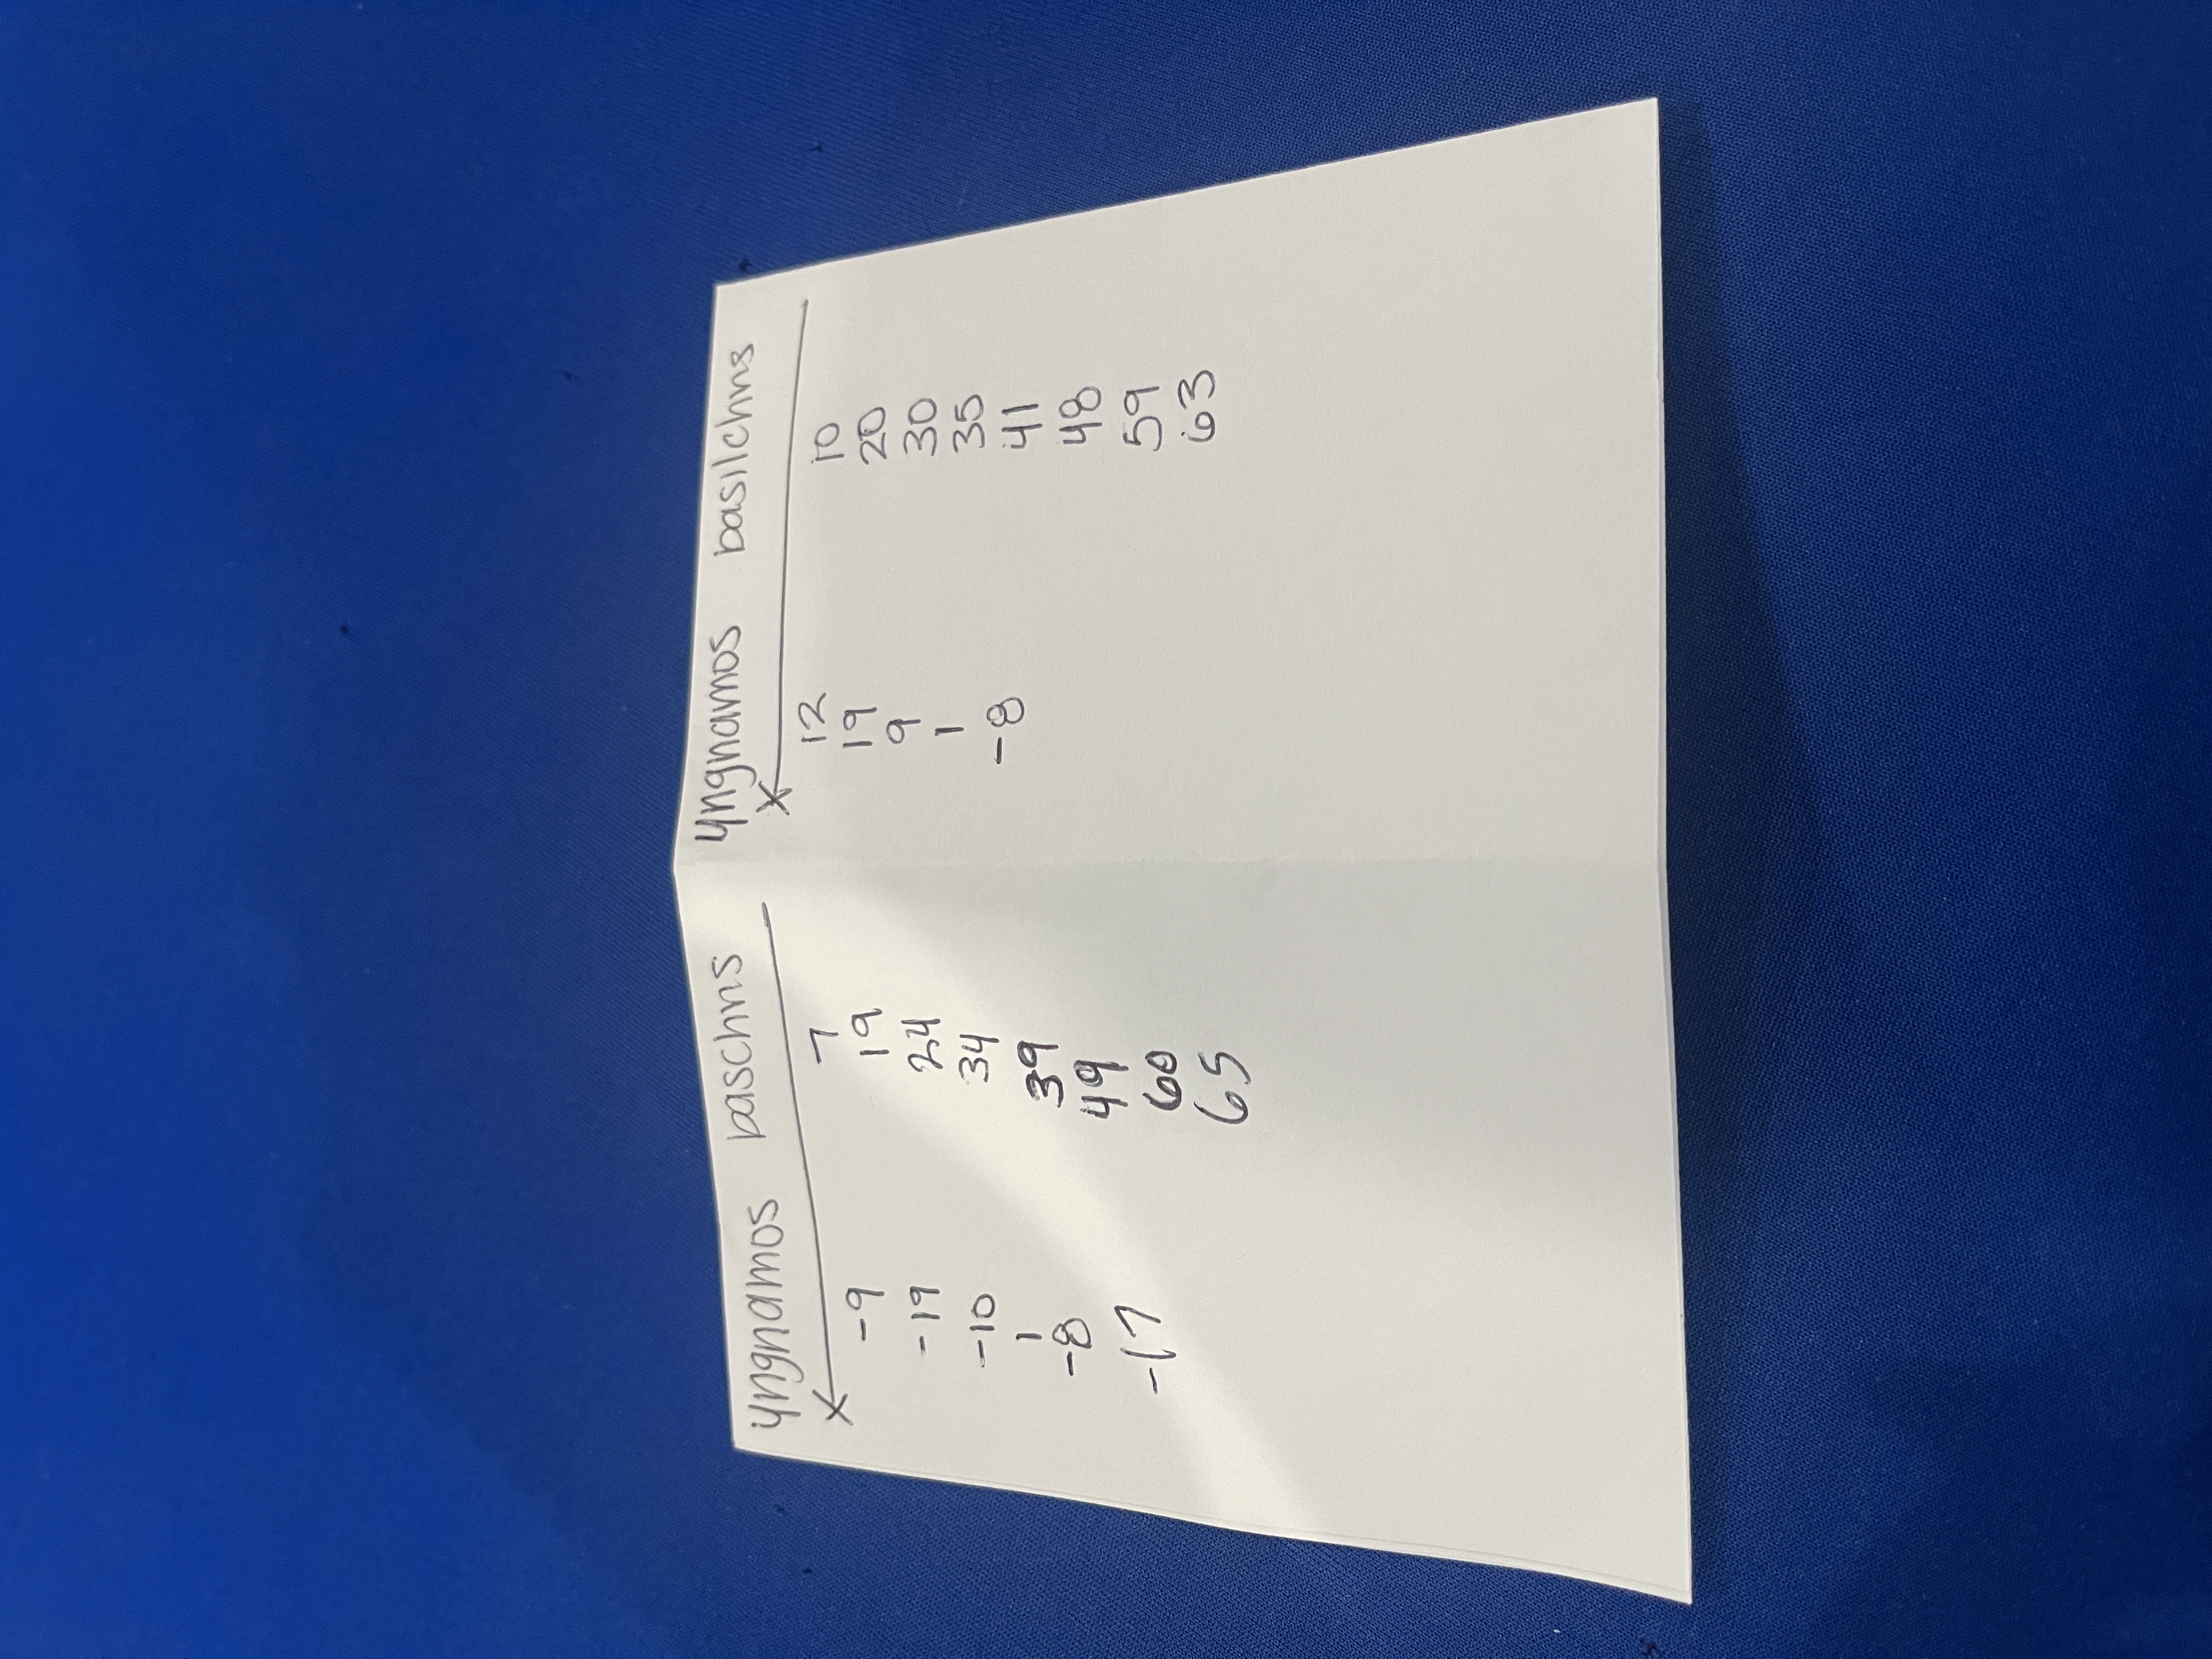 yngnamos baschns
x
7
-9 19
-19 24
-10 34
1 39
-8 49
-17 60
65
yngnamos basilchns
x
12 10
19 20
9 30
1 35
-8 41
48
59
63